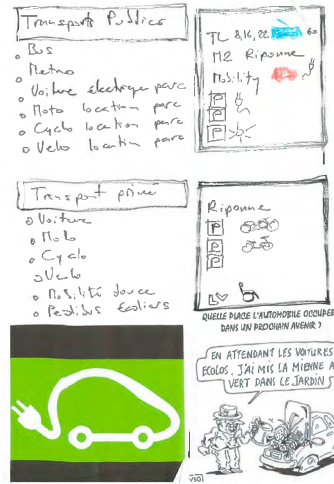 Transports Publics
Bus
Metro
Voiture électrique parc
Moto location parc
Cyclo location parc
Velo location parc
TL 8,16,22 60
M2 Riponne
Mobility
P
P
P
Transport privé
Voiture
Moto
Cyclo
Velo
Mobilité douce
Pedibus Ecoliers
Riponne
P
P
P
QUELLE PLACE L'AUTOMOBILE OCCUPER
DANS UN PROCHAIN AVENIR ?
EN ATTENDANT LES VOITURES
ECOLOS, J'AI MIS LA MIENNE A
VERT DANS LE JARDIN
VSD